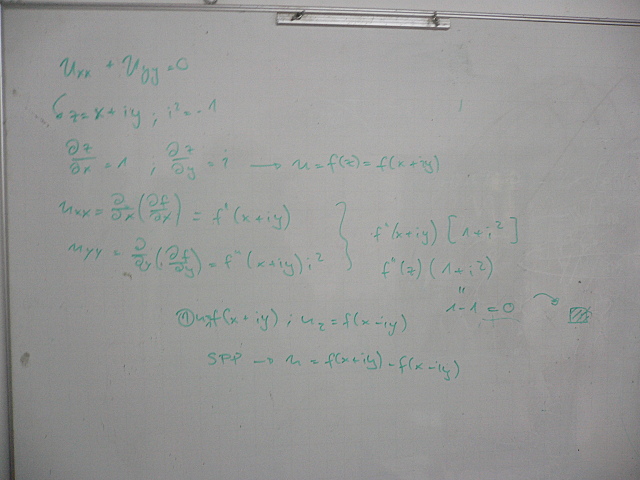 u_xx + u_yy = 0
z = x + iy ; i² = -1
∂z/∂x = 1 ; ∂z/∂y = i → u = f(z) = f(x+iy)
u_xx = ∂/∂x (∂f/∂x) = f''(x+iy)
u_yy = ∂/∂y (∂f/∂y) = f''(x+iy) i²
} f''(x+iy) [1+i²]
f''(z) (1+i²)
"
1-1 = 0
① u₁ = f(x+iy) ; u₂ = f(x-iy)
SPP → u = f(x+iy) - f(x-iy)